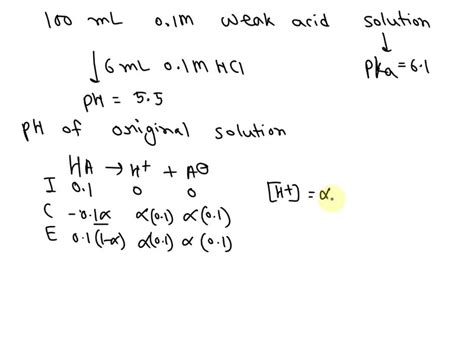 100 mL 0.1M weak acid solution
↓ 6 mL 0.1M HCl
pka = 6.1
pH = 5.5
pH of original solution
HA → H⁺ + A⊖
I 0.1 0 0
[H+] = α.
C -0.1α α(0.1) α(0.1)
E 0.1(1-α) α(0.1) α(0.1)